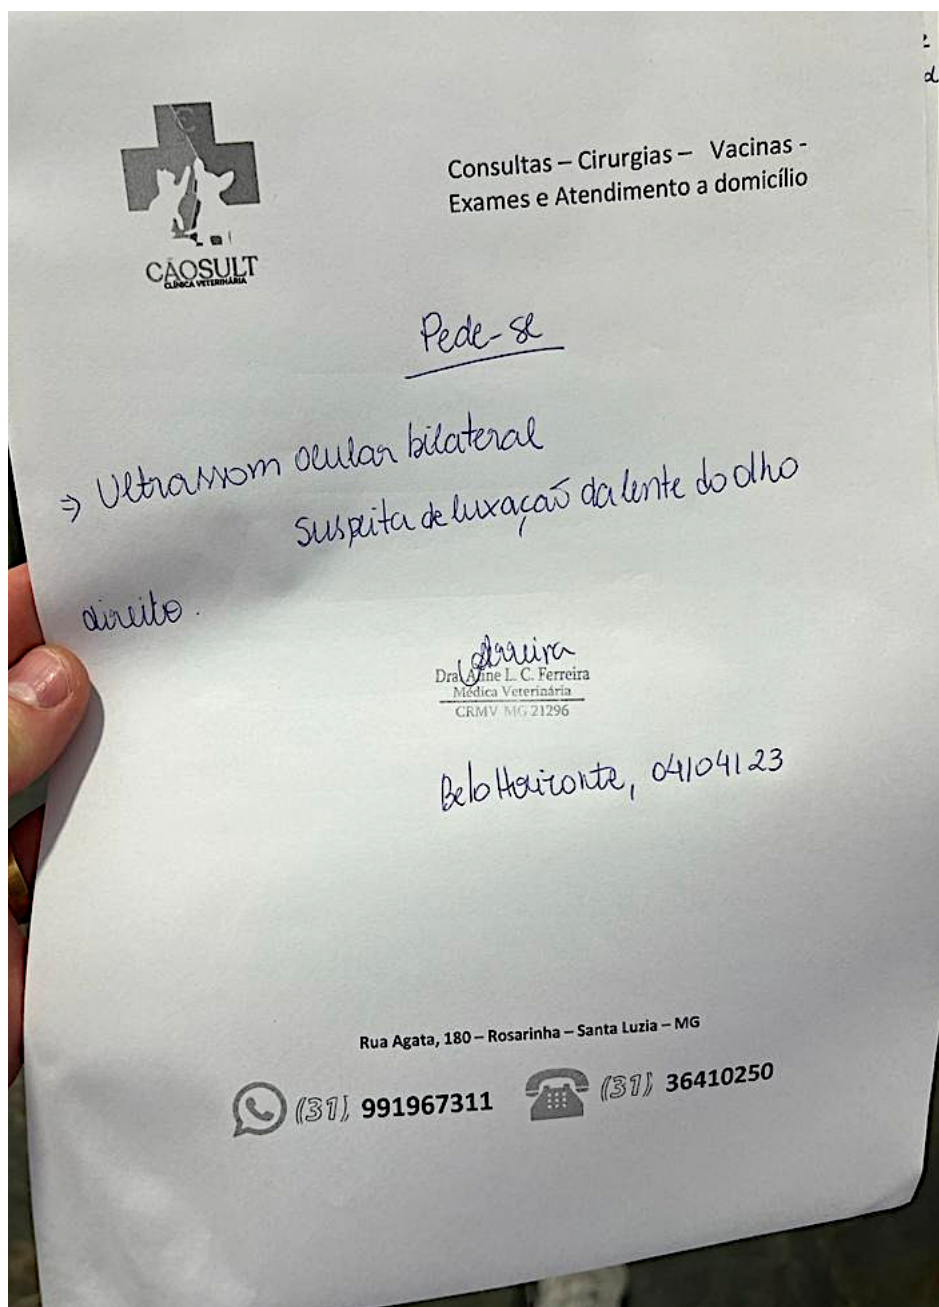 Consultas – Cirurgias – Vacinas -
Exames e Atendimento a domicílio
CÃOSULT
CLÍNICA VETERINÁRIA
Pede-se
⇒ Ultrassom ocular bilateral
Suspeita de luxação da lente do olho
direito.
Ferreira
Dra Aline L. C. Ferreira
Médica Veterinária
CRMV MG 21296
Belo Horizonte, 04/04/23
Rua Agata, 180 – Rosarinha – Santa Luzia – MG
(31) 991967311 (31) 36410250